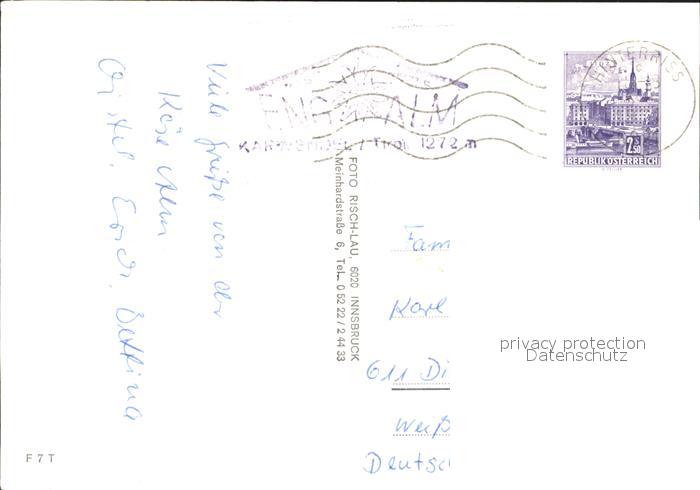 Viele Grüße von der
Käse Alm
Christel, Erich, Bettina
ENG ALM
KARWENDEL / Tirol 1272 m
HINTERRISS
2.50
REPUBLIK ÖSTERREICH
FOTO RISCH-LAU, 6020 INNSBRUCK
Meinhardstraße 6, Tel. 0 52 22 / 2 44 33
Fam
Karl
611 Di
Weiß
Deutsc
privacy protection
Datenschutz
F 7 T